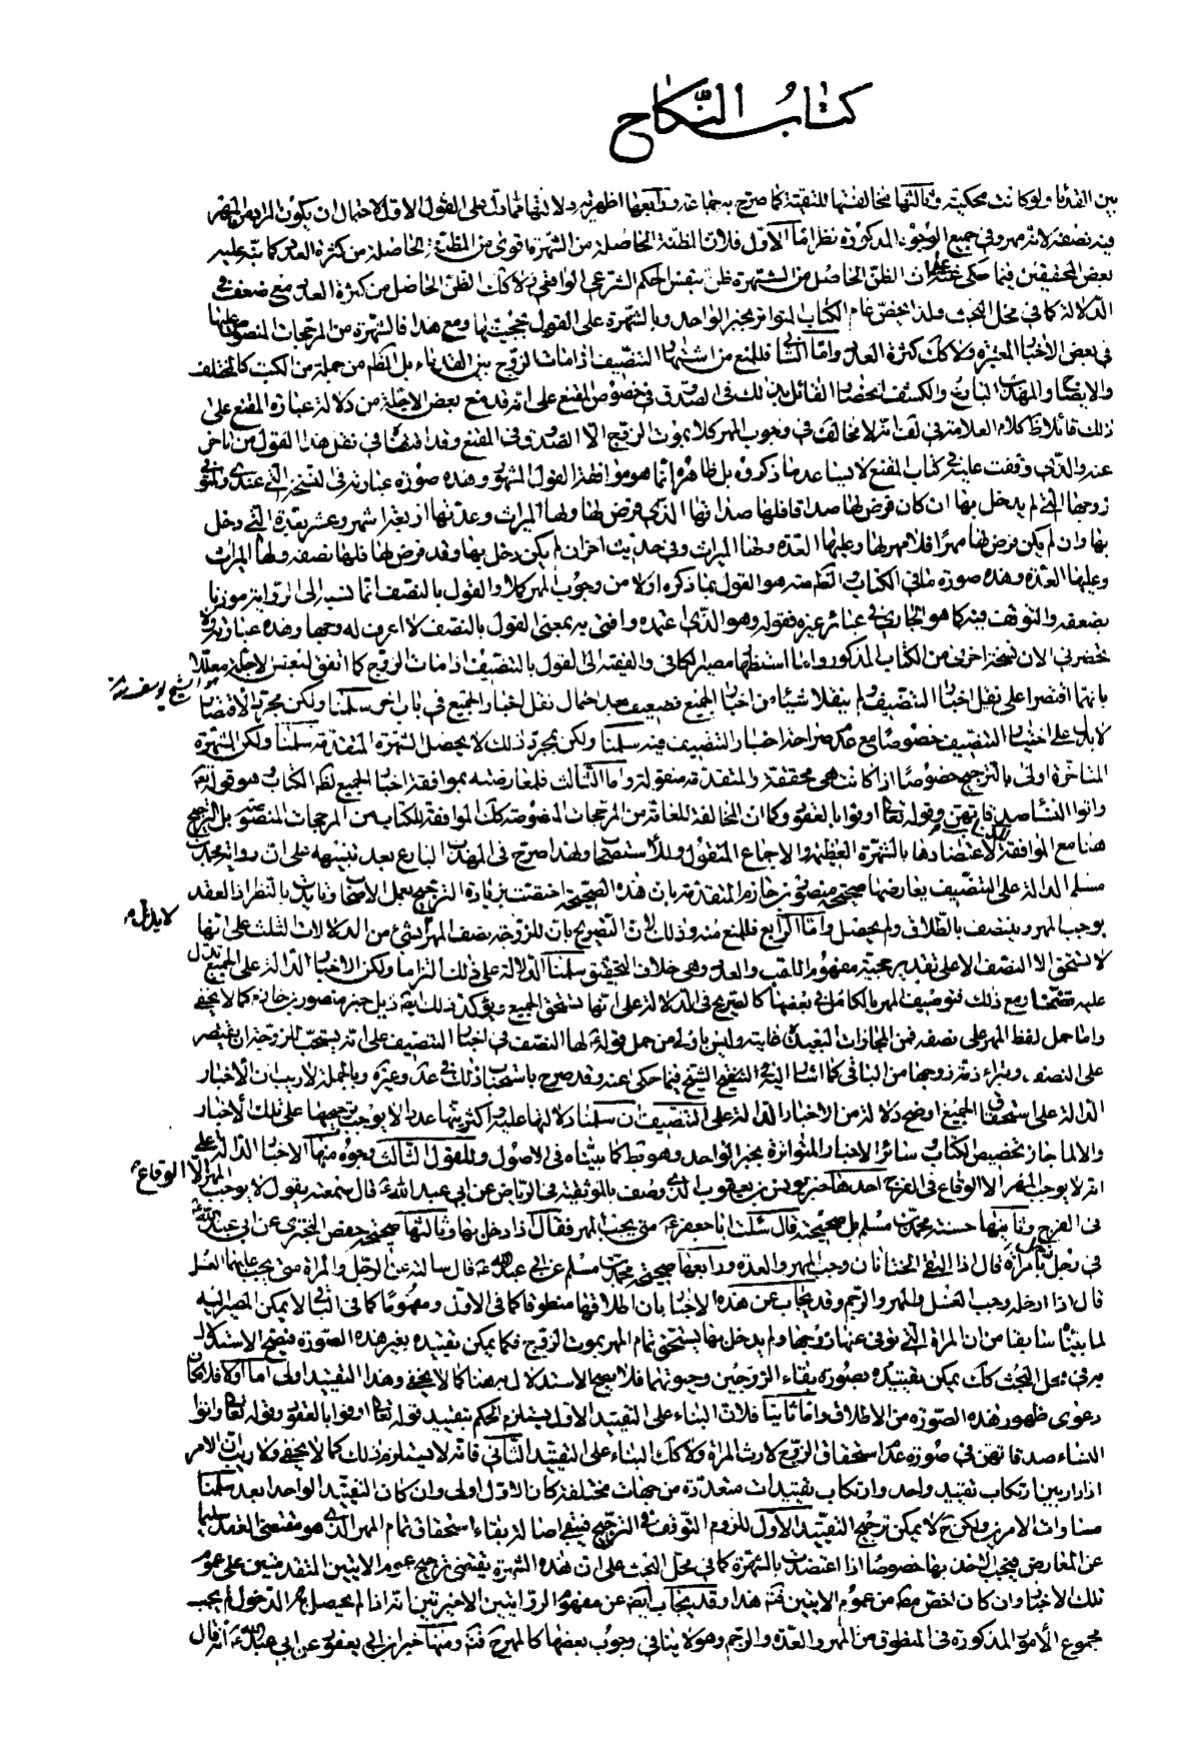 كتاب النكاح
بين القدماء ولو كانت محكية وثالثها مخالفتها للتقية كما صرح به جماعة ورابعها اظهرية دلالتها مما دل على القول الاول لاحتمال ان يكون المراد من المهر
فيه نصفه لانه مهر وفي جميع الوجوه المذكورة نظر اما الاول فلان المظنة الحاصلة من الشهرة اقوى من المظنة الحاصلة من كثرة العدد كما نبه عليه
بعض المحققين فيما حكى عنه على ان الظن الحاصل من الشهرة ظن بنفس الحكم الشرعي الواقعي ولا كك الظن الحاصل من كثرة العدد مع ضعف
الدلالة كما في محل البحث ولذا يخص عام الكتاب المتواتر بخبر الواحد وبالشهرة على القول بحجيتها ومع هذا فالشهرة من المرجحات المنصوص عليها
في بعض الاخبار المعتبرة ولا كك كثرة العدد واما الثاني فللمنع من اشتهار التنصيف اذا مات الزوج بين القدماء بل الظاهر من جملة من الكتب كالمختلف
والايضاح والمهذب البارع والكشف انحصار القائل بذلك في الصدوق في خصوص المقنع على انه قد منع بعض الاجلة من دلالة عبارة المقنع على
ذلك قائلا ظ كلام العلامة في لف انه لا مخالف في وجوب المهر كلا بموت الزوج الا الصدوق في المقنع وقد اقتفاه في نقل هذا القول من تاخر
عنه والذي وقفت عليه في كتاب المقنع لا يساعد ما ذكروه بل ظاهره انما هو موافقة القول المشهور وهذه صورة عبارته في النسخة التي عندي والمتوفى
زوجها التي لم يدخل بها ان كان فرض لها صداقا فلها صداقها الذي فرض لها ولها الميراث وعدتها اربعة اشهر وعشر كعدة التي دخل
بها وان لم يكن فرض لها مهرا فلا مهر لها وعليها العدة ولها الميراث وفي حديث اخر ان لم يكن دخل بها وقد فرض لها فلها نصفه ولها الميراث
وعليها العدة وهذه صورة ما في الكتاب والظاهر منه هو القول بما ذكره اولا من وجوب المهر كلا والقول بالنصف انما نسبه الى الرواية مؤذنا
بضعفه والتوقف فيه كما هو الجاري في عبائر غيره فقوله وهو الذي اعتمده وافتي به بمعنى القول بالنصف لا اعرف له وجها وهذه عبارته ولا
تحضرني الان نسخة اخرى من الكتاب المذكور واما استظهار مصير الكافي والفقيه الى القول بالتنصيف اذا مات الزوج كما اتفق لبعض الاجلة معللا
هو الشيخ يوسف
بانهما اقتصرا على نقل اخبار التنصيف ولم ينقلا شيئا من اخبار الجميع فضعيف جدا لاحتمال نقل اخبار الجميع في باب اخر سلمنا ولكن مجرد الاقتصار
لا يدل على اختيار التنصيف خصوصا مع عدم رد اخبار التنصيف فيه سلمنا ولكن بمجرد ذلك لا يحصل الشهرة المتقدمة سلمنا ولكن الشهرة
المتاخرة اولى بالترجيح خصوصا اذا كانت هي محققة والمتقدمة منقولة واما الثالث فلمعارضته بموافقة اخبار الجميع لظ الكتاب هو قوله تع
واتوا النساء صدقاتهن وقوله تعالى اوفوا بالعقود وكما ان المخالفة للعامة من المرجحات المنصوصة كك الموافقة للكتاب من المرجحات المنصوصة بل الترجيح
هنا مع الموافقة للكتاب لاعتضادها بالشهرة العظيمة والاجماع المنقول وللاستصحاب ولهذا صرح في المهذب البارع بعد تنبيهه على ان رواية محمد بن
مسلم الدالة على التنصيف يعارضها صحيحة منصور بن حازم المتقدمة بان هذه الصحيحة اختصت بزيادة الترجيح بعمل الاصحاب وتايدت بالنظر اذ العقد
لا يدل م
يوجب المهر وينتصف بالطلاق ولم يحصل واما الرابع فللمنع منه وذلك لان التصريح بان للزوجة نصف المهر شيء من الدلالات الثلث على انها
لا تستحق الا النصف الا على تقدير حجية مفهوم اللقب والعدد وهي خلاف التحقيق سلمنا الدلالة على ذلك التزاما ولكن الاخبار الدالة على الجميع تدل
عليه تضمنا ومع ذلك فتوصيف المهر بالكامل في بعضها كالصريح في الدلالة على انها تستحق الجميع ويؤكد ذلك ايضا ذيل خبر منصور بن حازم كما لا يخفى
واما حمل لفظ المهر على نصفه فمن المجازات البعيدة غايته وليس باولى من حمل قوله لها النصف في اخبار التنصيف على انه يستحب للزوجة ان تقتصر
على النصف وتبرء ذمة زوجها من الباقي كما اشار اليه في التنقيح الشيخ فيما حكى عنه وقد صرح باستحباب ذلك في عد وغيره وبالجملة لا ريب ان الاخبار
الدالة على استحقاق الجميع اوضح دلالة من الاخبار الدالة على التنصيف ان سلمنا دلالتها عليه واكثريتها عددا لا يوجب ترجيحها على تلك الاخبار
والا لما جاز تخصيص الكتاب وسائر الاخبار المتواترة بخبر الواحد وهو قط كما بيناه في الاصول وللقول الثالث وجوه منها الاخبار الدالة على
المهر الا الوقاع
انه لا يوجب المهر الا الوقاع في الفرج احدها خبر يونس بن يعقوب الذي وصف بالموثقية في الرياض عن ابي عبد الله ع قال سمعته يقول لا يوجب
في الفرج وثانيها حسنة محمد بن مسلم بل صحيحته قال سئلت ابا جعفر ع متى يجب المهر فقال اذا دخل بها وثالثها صحيحة حفص البختري عن ابي عبد الله
في رجل دخل بامراة قال اذا التقى الختانان وجب المهر والعدة ورابعها صحيحة محمد بن مسلم عن ابي عبد الله ع قال سالته عن الرجل والمراة متى يجب عليهما الغسل
قال اذا ادخله وجب الغسل والمهر والرجم وقد يجاب عن هذه الاخبار بان اطلاقها منطوقا كما في الاول ومفهوما كما في الثاني لا يمكن المصير اليه
لما بينا سابقا من ان المراة التي توفى عنها زوجها ولم يدخل بها يستحق تمام المهر بموت الزوج فكما يمكن تقييده بغير هذه الصورة فيصح الاستدلال
به في محل البحث كك يمكن تقييده بصورة بقاء الزوجين وحيوتهما فلا يصح الاستدلال به هنا كما لا يخفى وهذا التقييد اولى اما اولا فلامكان
دعوى ظهور هذه الصورة من الاطلاق واما ثانيا فلان البناء على التقييد الاول يستلزم الحكم بتقييد قوله تعالى اوفوا بالعقود وقوله تعالى واتوا
النساء صدقاتهن في صورة عدم استحقاق الزوج لارث المراة ولا كك البناء على التقييد الثاني فانه لا يستلزم ذلك كما لا يخفى ولا ريب ان الامر
اذا دار بين ارتكاب تقييد واحد وارتكاب تقييدات متعددة من جهات مختلفة كان الاول اولى وان كان التقييد الواحد ابعد سلمنا
مساوات الامرين ولكن ح لا يمكن ترجيح التقييد الاول للزوم التوقف في الترجيح فيبقى اصالة بقاء استحقاق تمام المهر الذي هو مقتضى العقد سليما
عن المعارض فيجب الاخذ بها خصوصا اذا اعتضدت بالشهرة كما في محل البحث على ان هذه الشهرة يقتضي ترجيح عموم الايتين المتقدمتين على عموم
تلك الاخبار وان كان اخص مط من عموم الايتين فتم هذا وقد يجاب ايضا عن مفهوم الروايتين الاخيرتين انه اذا لم يحصل الدخول لم يجب
مجموع الامور المذكورة في المنطوق من المهر والعدة والرجم وهو لا ينافي وجوب بعضها كالمهر ح فتم ومنها خبر ابن ابي يعفور عن ابي عبد الله ع انه قال